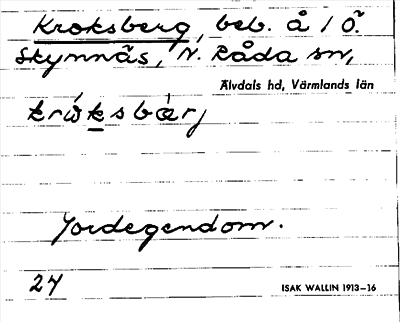 Kroksberg, beb. å / Ö.
Skymnäs, N. Råda sn,
Älvdals hd, Värmlands län
Jordegendom.
24
ISAK WALLIN 1913–16